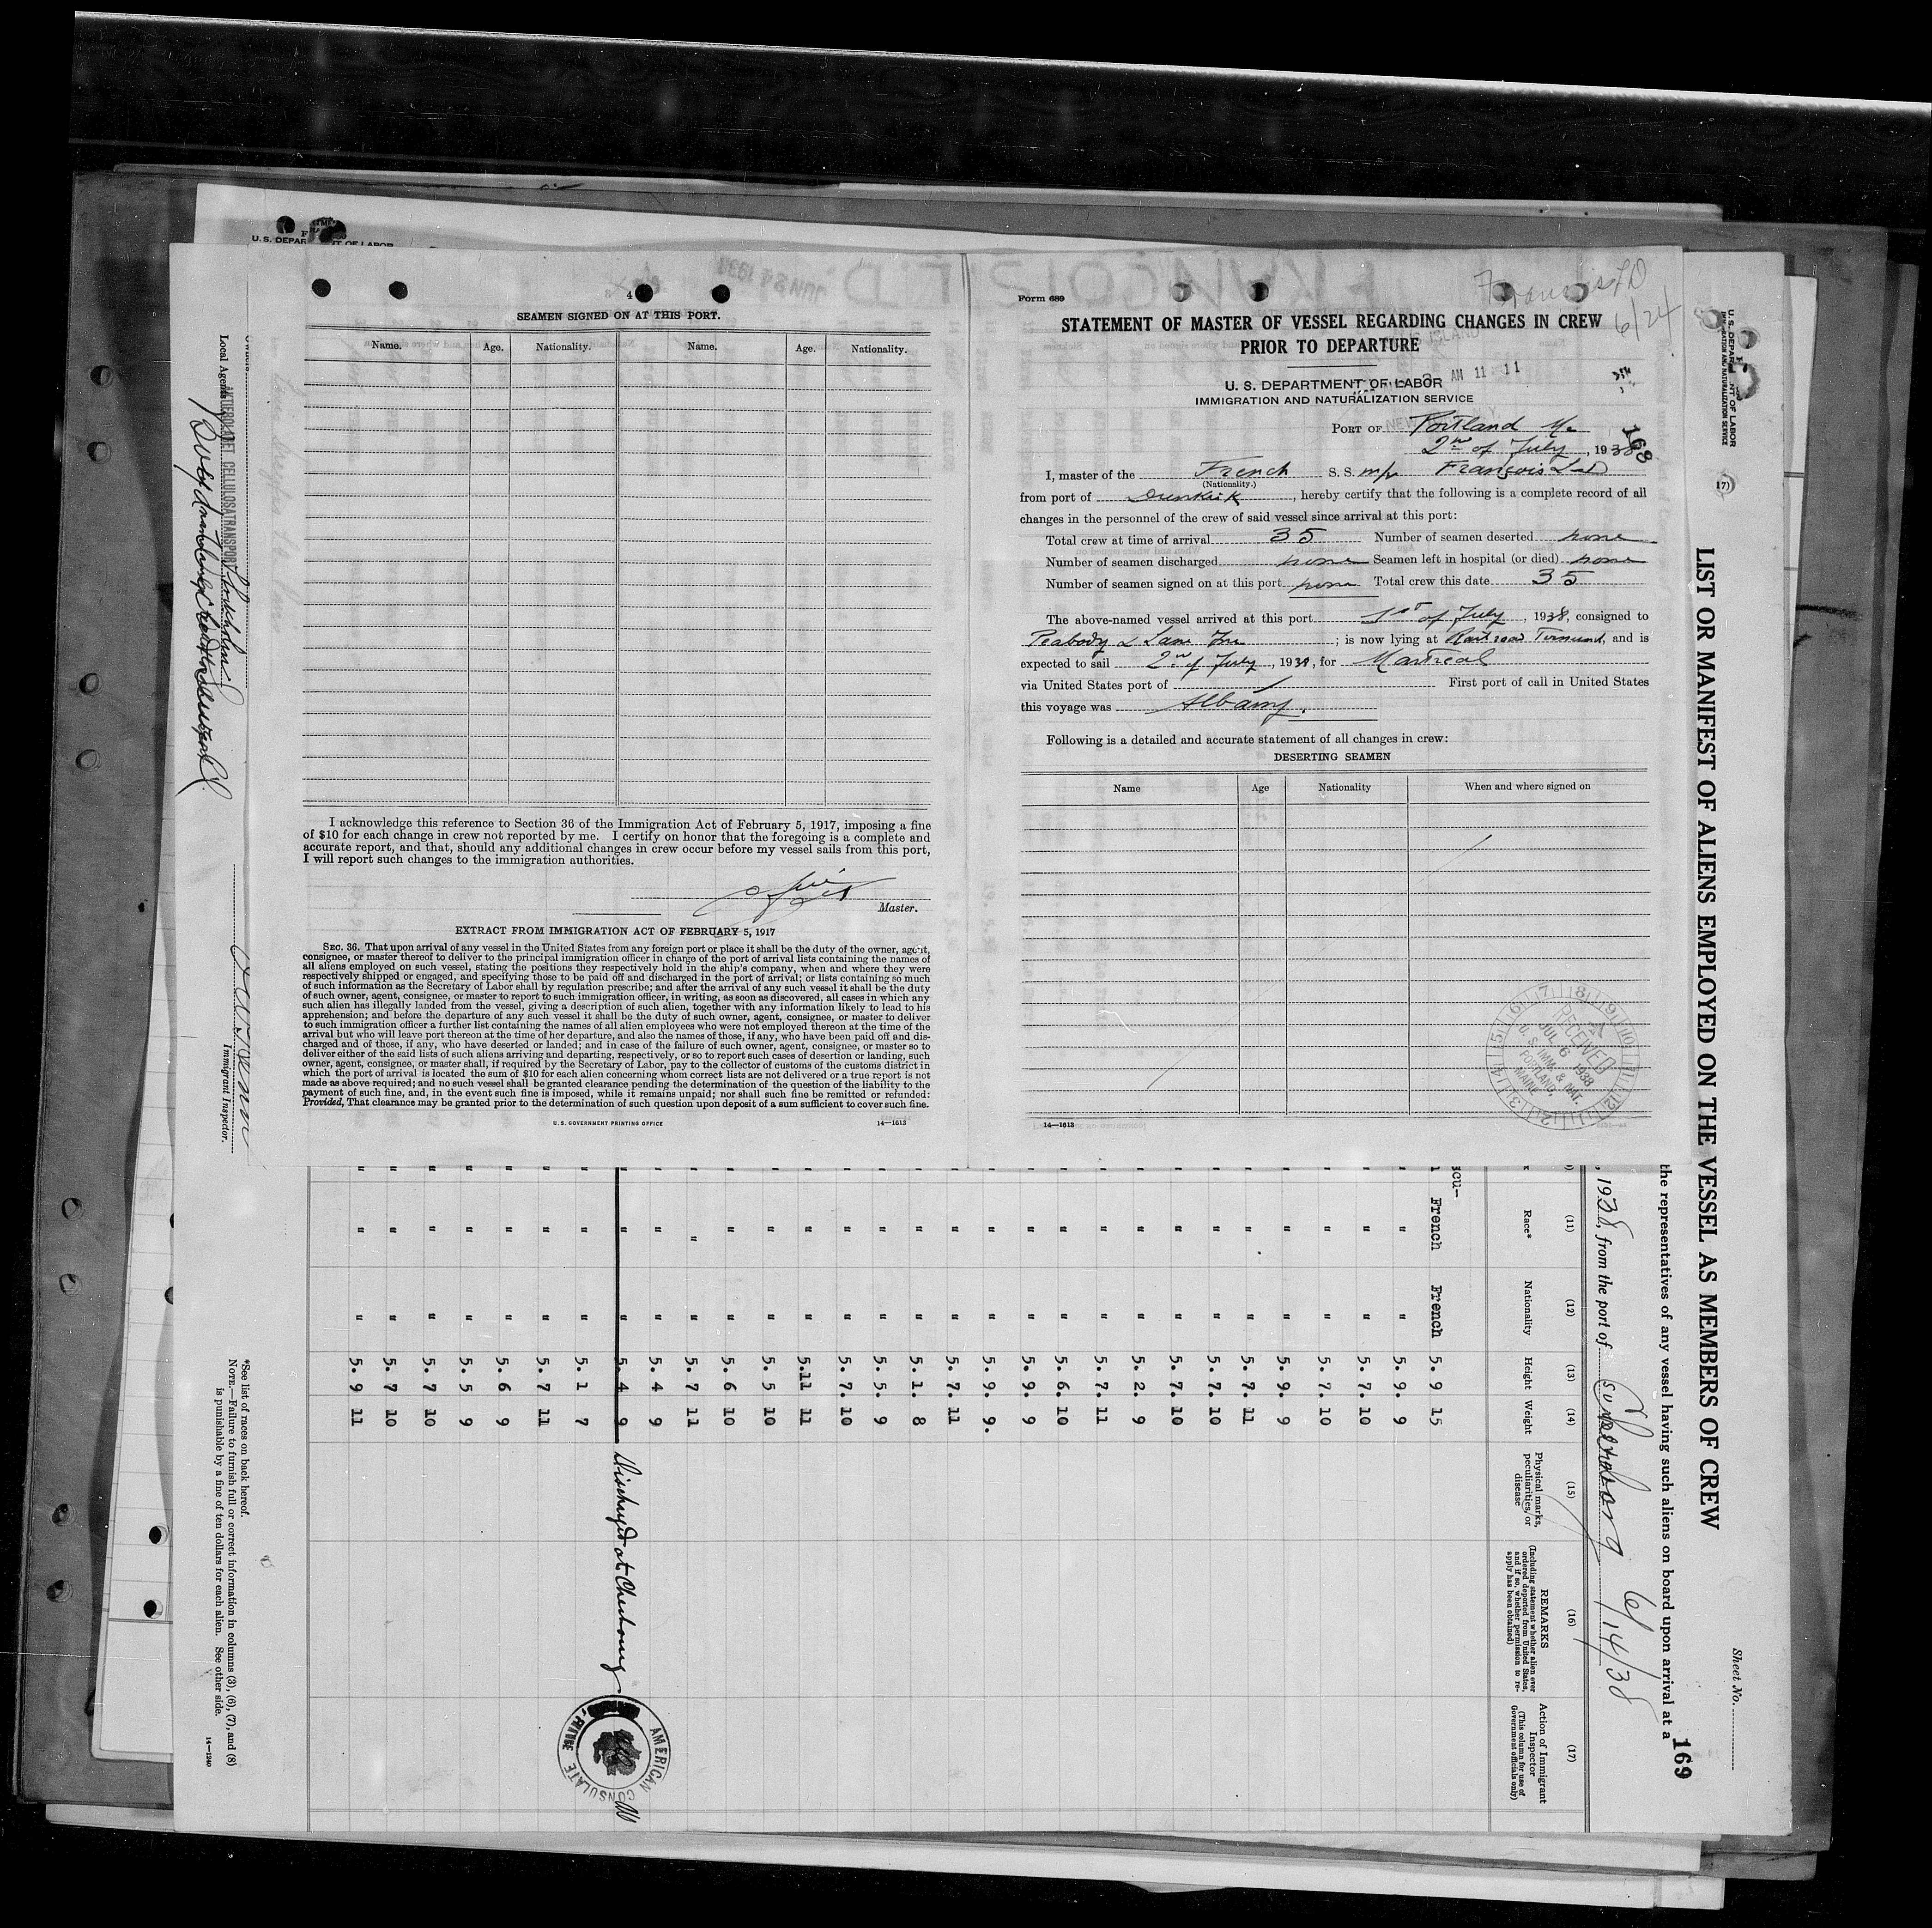 SEAMEN SIGNED ON AT THIS PORT.
Name. Age. Nationality. Name. Age. Nationality.
I acknowledge this reference to Section 36 of the Immigration Act of February 5, 1917, imposing a fine
of $10 for each change in crew not reported by me. I certify on honor that the foregoing is a complete and
accurate report, and that, should any additional changes in crew occur before my vessel sails from this port,
I will report such changes to the immigration authorities.
Master.
EXTRACT FROM IMMIGRATION ACT OF FEBRUARY 5, 1917
SEC. 36. That upon arrival of any vessel in the United States from any foreign port or place it shall be the duty of the owner, agent,
consignee, or master thereof to deliver to the principal immigration officer in charge of the port of arrival lists containing the names of
all aliens employed on such vessel, stating the positions they respectively hold in the ship's company, when and where they were
respectively shipped or engaged, and specifying those to be paid off and discharged in the port of arrival; or lists containing so much
of such information as the Secretary of Labor shall by regulation prescribe; and after the arrival of any such vessel it shall be the duty
of such owner, agent, consignee, or master to report to such immigration officer, in writing, as soon as discovered, all cases in which any
such alien has illegally landed from the vessel, giving a description of such alien, together with any information likely to lead to his
apprehension; and before the departure of any such vessel it shall be the duty of such owner, agent, consignee, or master to deliver
to such immigration officer a further list containing the names of all alien employees who were not employed thereon at the time of the
arrival but who will leave port thereon at the time of her departure, and also the names of those, if any, who have been paid off and dis-
charged and of those, if any, who have deserted or landed; and in case of the failure of such owner, agent, consignee, or master so to
deliver either of the said lists of such aliens arriving and departing, respectively, or so to report such cases of desertion or landing, such
owner, agent, consignee, or master shall, if required by the Secretary of Labor, pay to the collector of customs of the customs district in
which the port of arrival is located the sum of $10 for each alien concerning whom correct lists are not delivered or a true report is not
made as above required; and no such vessel shall be granted clearance pending the determination of the question of the liability to the
payment of such fine, and, in the event such fine is imposed, while it remains unpaid; nor shall such fine be remitted or refunded:
Provided, That clearance may be granted prior to the determination of such question upon deposit of a sum sufficient to cover such fine.
U. S. GOVERNMENT PRINTING OFFICE 14—1613
Form 689
François LD
6/24
STATEMENT OF MASTER OF VESSEL REGARDING CHANGES IN CREW
PRIOR TO DEPARTURE
AM 11 11
U. S. DEPARTMENT OF LABOR
IMMIGRATION AND NATURALIZATION SERVICE
PORT OF Portland Me
2nd of July, 1938
168
I, master of the French S. S. m/v François L-D
(Nationality.)
from port of Dunkirk, hereby certify that the following is a complete record of all
changes in the personnel of the crew of said vessel since arrival at this port:
Total crew at time of arrival 35 Number of seamen deserted none
Number of seamen discharged none Seamen left in hospital (or died) none
Number of seamen signed on at this port none Total crew this date 35
The above-named vessel arrived at this port 1st of July, 1938, consigned to
Peabody & Lane Inc; is now lying at Railroad Terminal, and is
expected to sail 2nd of July, 1938, for Montreal
via United States port of First port of call in United States
this voyage was Albany.
Following is a detailed and accurate statement of all changes in crew:
DESERTING SEAMEN
Name Age Nationality When and where signed on
RECEIVED
JUL 6 1938
U. S. IMM. & NAT.
PORTLAND,
MAINE
14—1613
U. S. DEPARTMENT OF LABOR
IMMIGRATION AND NATURALIZATION SERVICE
Sheet No.
169
LIST OR MANIFEST OF ALIENS EMPLOYED ON THE VESSEL AS MEMBERS OF CREW
the representatives of any vessel having such aliens on board upon arrival at a
, 1938, from the port of Cherbourg 6/14/38
(11) (12) (13) (14) (15) (16) (17)
Race* Nationality Height Weight Physical marks, peculiarities, or disease
REMARKS
(Including statement whether alien ever ordered deported from United States, and if so, whether permission to re-apply has been obtained)
Action of Immigrant Inspector
(This column for use of Government officials only)
French French 5. 9 15
" " 5. 9. 9
" " 5. 7. 10
" " 5. 7. 10
" " 5. 9. 9
" " 5. 7. 11
" " 5. 7. 10
" " 5. 7. 10
" " 5. 2. 9
" " 5. 7. 11
" " 5. 6. 10
" " 5. 9. 9
" " 5. 9. 9.
" " 5. 7. 11
" " 5. 1. 8
" " 5. 5. 9
" " 5. 7. 10
" " 5.11 11
" " 5. 5 10
" " 5. 6 10
" " 5. 7 11
" " 5. 4 9
" " 5. 4 9 Discharged at Cherbourg
" " 5. 1 7
" " 5. 7 11
" " 5. 6 9
" " 5. 5 9
" " 5. 7 10
" " 5. 7 10
" " 5. 9 11
AMERICAN CONSULATE
*See list of races on back hereof.
NOTE.—Failure to furnish full or correct information in columns (3), (6), (7), and (8)
is punishable by a fine of ten dollars for each alien. See other side.
14—1240
Local Agents
AKTIEBOLAGET CELLULOSATRANSPORT
Stockholm
Immigrant Inspector.